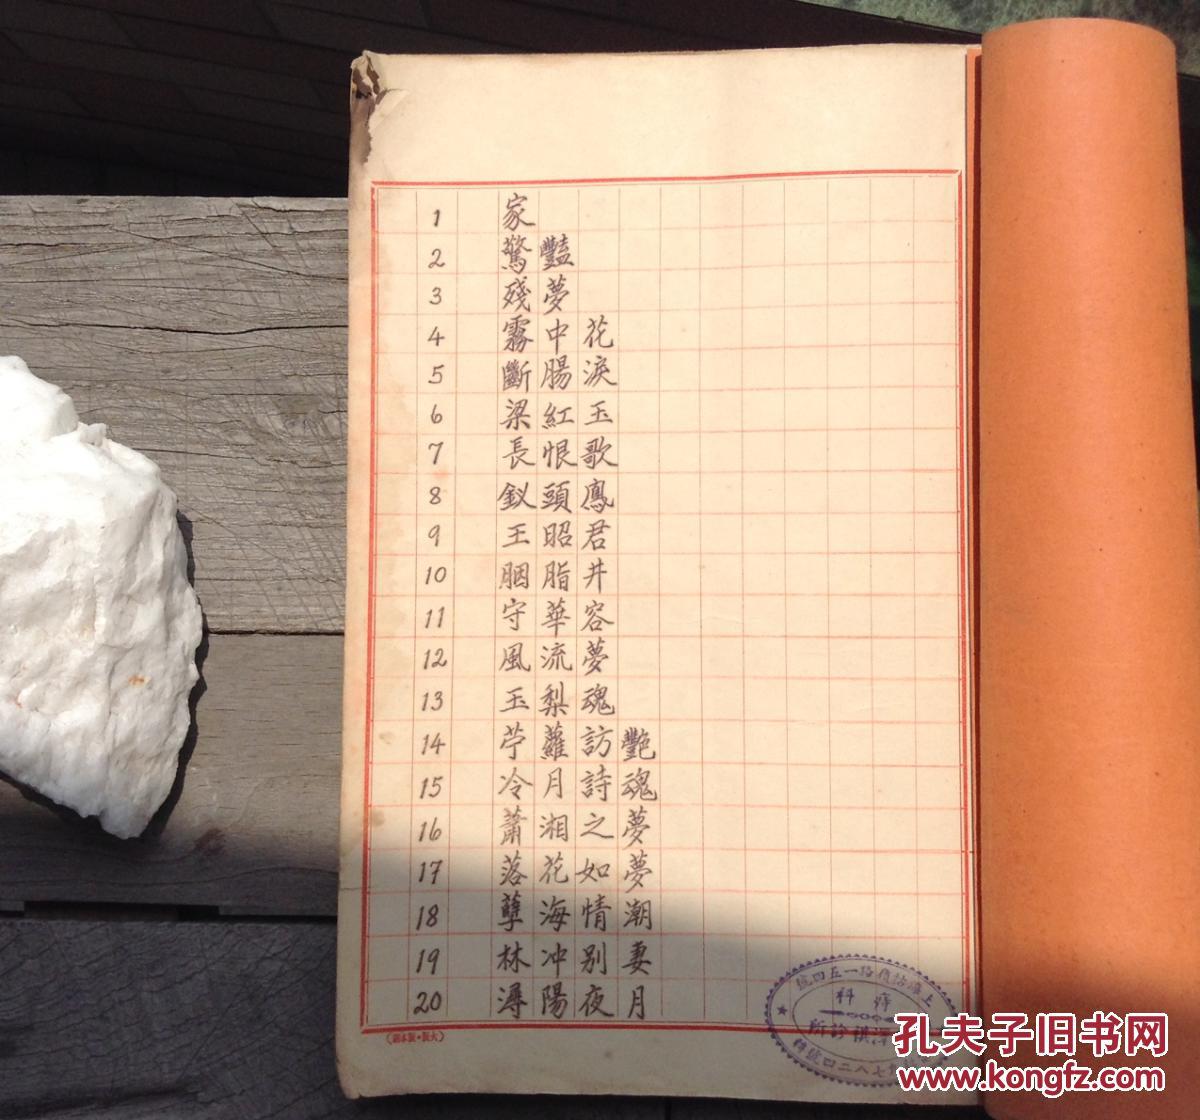 1 家
2 驚豔
3 殘夢
4 霧中花
5 斷腸淚
6 梁紅玉
7 長恨歌
8 釵頭鳳
9 王昭君
10 胭脂井
11 守華容
12 風流夢
13 玉梨魂
14 苧蘿訪艷
15 冷月詩魂
16 蕭湘之夢
17 落花如夢
18 孽海情潮
19 林冲别妻
20 潯陽夜月
孔夫子旧书网
www.kongfz.com